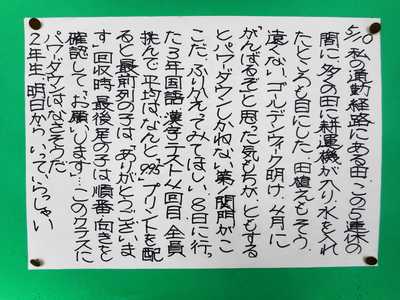 5/10 私の通勤経路にある田。この5連休の
間に、多くの田に耕運機が入り、水を入れ
たところも目にした。田植えもそう
遠くない。ゴールデンウィーク明け、4月に
「がんばるぞ」と思った気もちが、ともする
とパワーダウンしかねない第一関門がこ
こだ。ふりかえってみてほしい。8日に行っ
た3年国語漢字テスト4回目。全員
挑んで平均は、なんと「99」。プリントを配
ると最前列の子は、「ありがとうございま
す」。回収時、最後尾の子は「順番、向きを
確認して、お願いします」…このクラスに
パワーダウンはなさそうだ。
2年生、明日から、いってらっしゃい